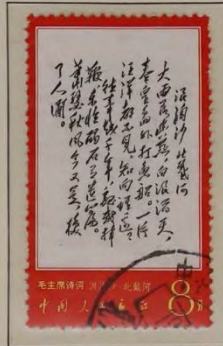 浪淘沙 北戴河
大雨落幽燕，白浪滔天，
秦皇岛外打鱼船。一片
汪洋都不见，知向谁边？
往事越千年，魏武挥
鞭，东临碣石有遗篇。
萧瑟秋风今又是，换
了人间。
毛主席诗词 浪淘沙 北戴河
中国人民邮政
8分